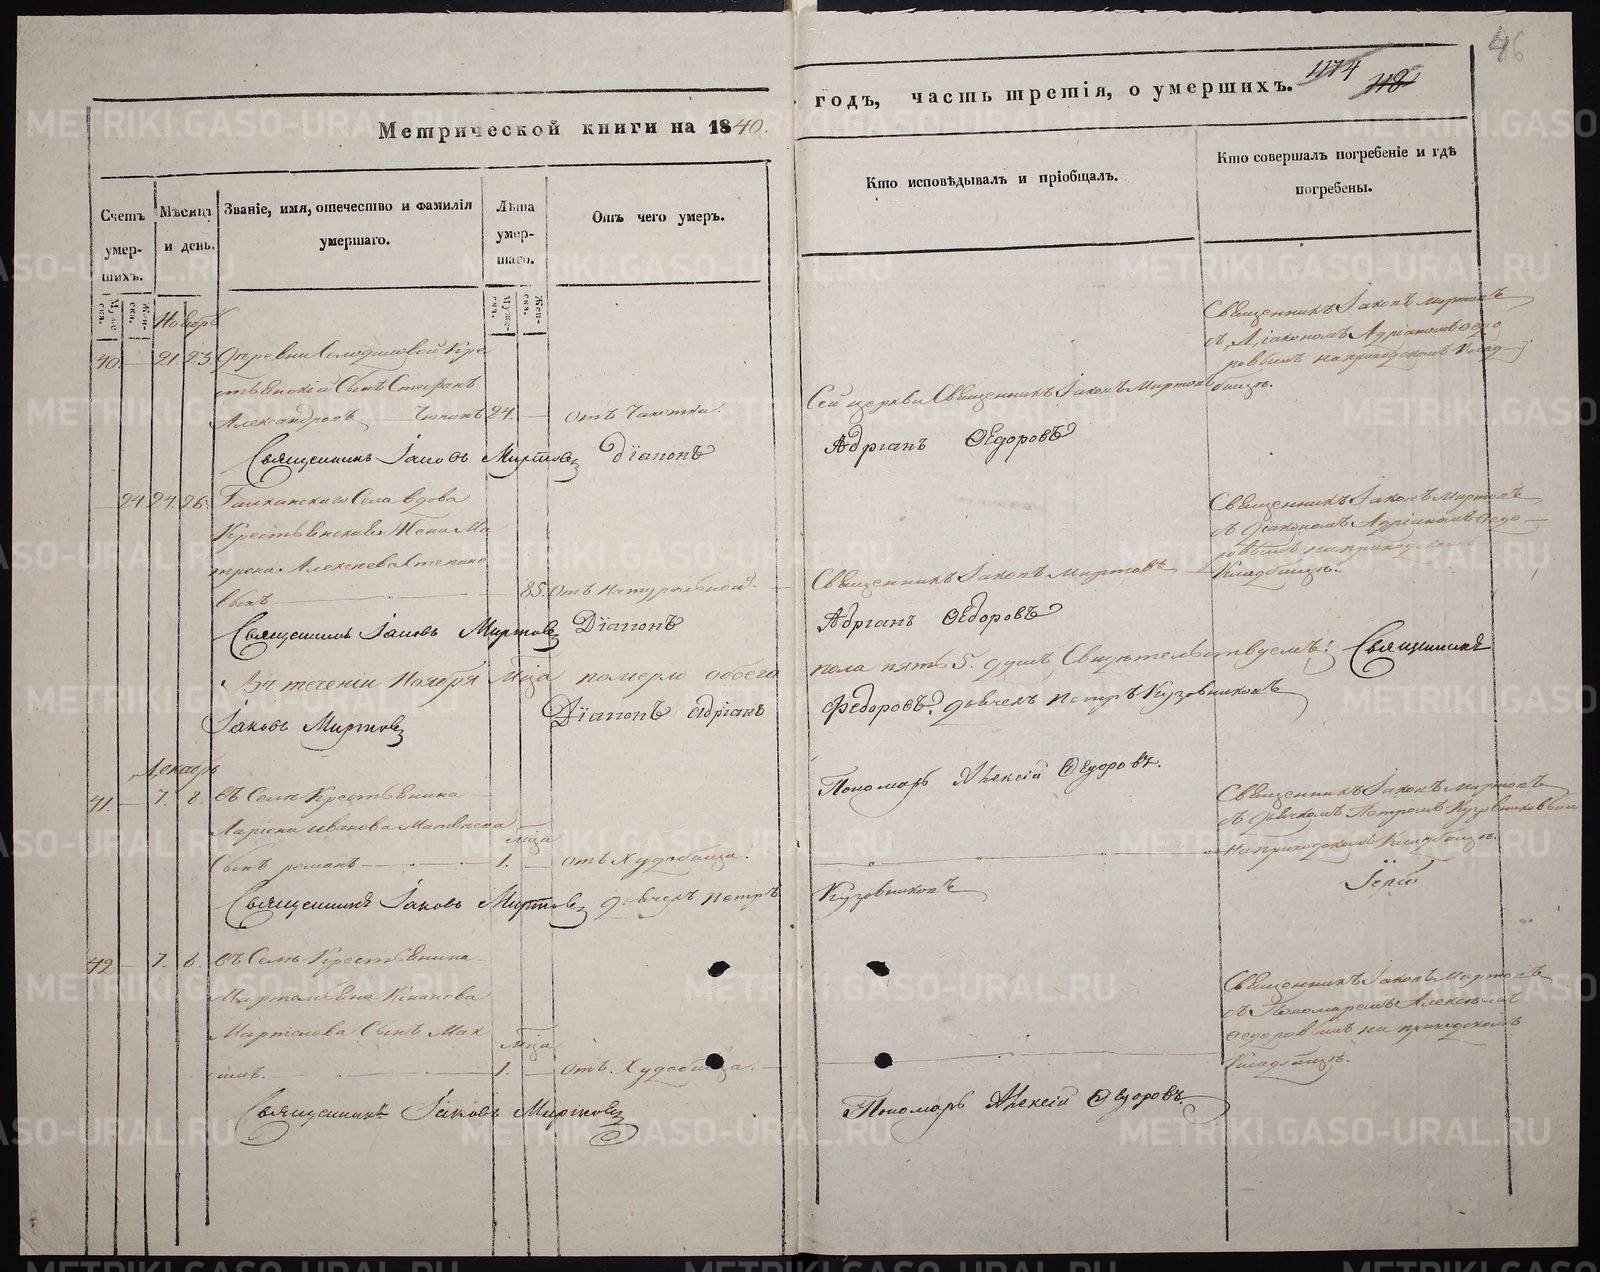 46
Метрической книги на 1840.
годъ, часть третія, о умершихъ.
1174
118
Счетъ умер- шихъ.
Мѣсяцъ и день.
Званіе, имя, отечество и фамилія умершаго.
Лѣта умер- шаго.
Отъ чего умеръ.
Кто исповѣдывалъ и пріобщалъ.
Кто совершалъ погребеніе и гдѣ погребены.
Муже- ска.
Жен- ска.
Муже- ска.
Жен- ска.
Ноябрь
40 — 21. 23 Деревни Кре-
стьянскій Сынъ Стефанъ
Александровъ 24. — отъ Чахотки.
Сей церкви Священникъ Іаковъ Миртовъ
Священникъ Іаковъ Миртовъ
съ Діакономъ Адріаномъ Ѳедо
ровымъ на приходскомъ Клад-
бищѣ.
Священникъ Іаковъ Миртовъ Діаконъ
Адріанъ Ѳедоровъ
— 24 24. 26. Села вдова
Крестьянская Жена Ма
трона Алексѣева Степано
85. отъ Натуральной.
Священникъ Іаковъ Миртовъ
Священникъ Іаковъ Миртовъ
съ Діакономъ Адріаномъ Ѳедо-
ровымъ на приходскомъ
Кладбищѣ.
Священникъ Іаковъ Миртовъ Діаконъ
Адріанъ Ѳедоровъ
Въ теченіи Ноября Мца померло обоего
пола пять 5. душъ, Свидѣтельствуемъ: Священникъ
Іаковъ Миртовъ Діаконъ Адріанъ
Ѳедоровъ. дьячекъ Петръ Кузовниковъ
Пономарь Алексій Ѳедоровъ.
Декабрь
41. — 7. 8. въ Селѣ Крестьянина
Иванова Матвѣева
Сынъ романъ — Мца 1. — отъ Худобища.
Священникъ Іаковъ Миртовъ
съ дьячкомъ Петромъ Кузовниковымъ
на приходскомъ Кладбищѣ.
Священникъ Іаковъ Миртовъ дьячекъ Петръ
Кузовниковъ
42 — 7. 8. въ Селѣ Крестьянина
Сынъ Мак
симъ. — Мца 1. — отъ Худобища.
Священникъ Іаковъ Миртовъ
съ Пономаремъ Алексѣемъ
Ѳедоровымъ на приходскомъ
Кладбищѣ.
Священникъ Іаковъ Миртовъ
Пономарь Алексій Ѳедоровъ.
METRIKI.GASO-URAL.RU